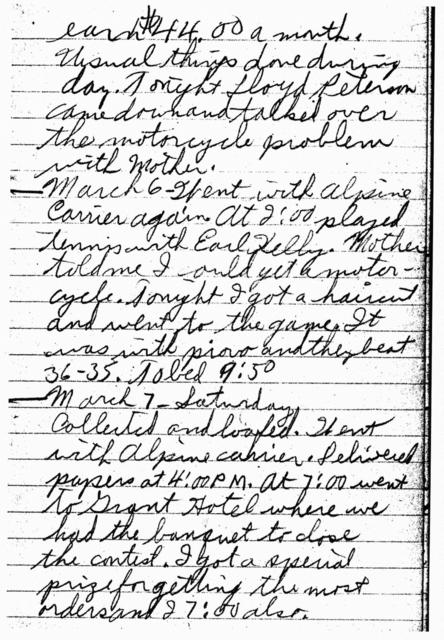 earn $44.00 a month.
Usual things done during
day. Tonight Lloyd Peterson
came down and talked over
the motorcycle problem
with Mother.
— March 6 - Went with Alpine
Carrier again. At 2:00 played
tennis with Earl Kelly. Mother
told me I ould get a motor-
cycle. Tonight I got a haircut
and went to the game. It
was with provo and they beat
36-35. To bed 9:50
— March 7 - Saturday
Collected and loafed. Went
with Alpine carrier. Delivered
papers at 4:00 P.M. At 7:00 went
to Grant Hotel where we
had the banquet to close
the contest. I got a special
prize for getting the most
orders and I 7:00 also.